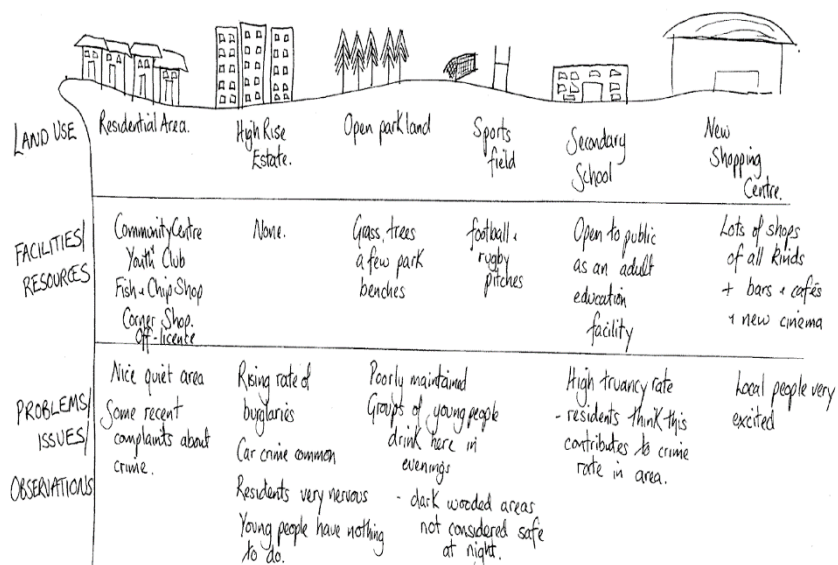 LAND USE
Residential Area.
High Rise
Estate.
Open park land
Sports
field
Secondary
School
New
Shopping
Centre.
FACILITIES/
RESOURCES
Community Centre
Youth Club
Fish + Chip Shop
Corner Shop.
Off-licence
None.
Grass, trees
a few park
benches
football +
rugby
pitches
Open to public
as an adult
education
facility
Lots of shops
of all kinds
+ bars + cafés
+ new cinema
PROBLEMS/
ISSUES/
OBSERVATIONS
Nice quiet area
Some recent
complaints about
crime.
Rising rate of
burglaries
Car crime common
Residents very nervous
Young people have nothing
to do.
Poorly maintained
Groups of young people
drink here in
evenings
- dark wooded areas
not considered safe
at night.
High truancy rate
- residents think this
contributes to crime
rate in area.
Local people very
excited